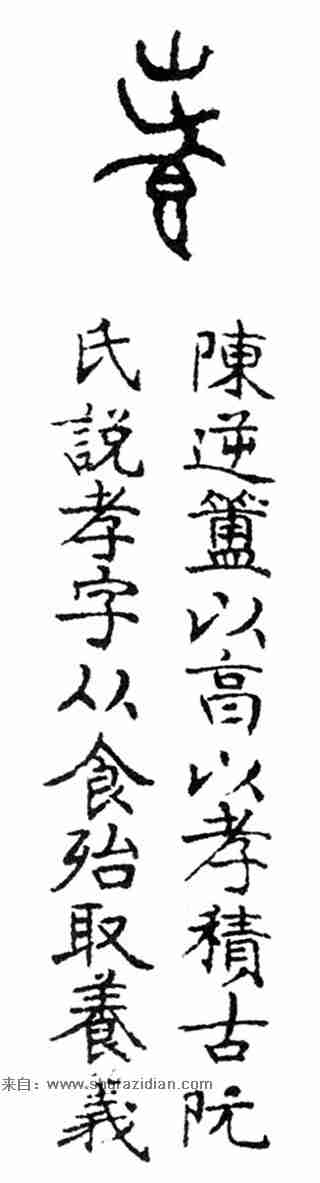 陳逆簠以亯以孝積古阮
氏說孝字从食殆取養義
来自：www.shufazidian.com